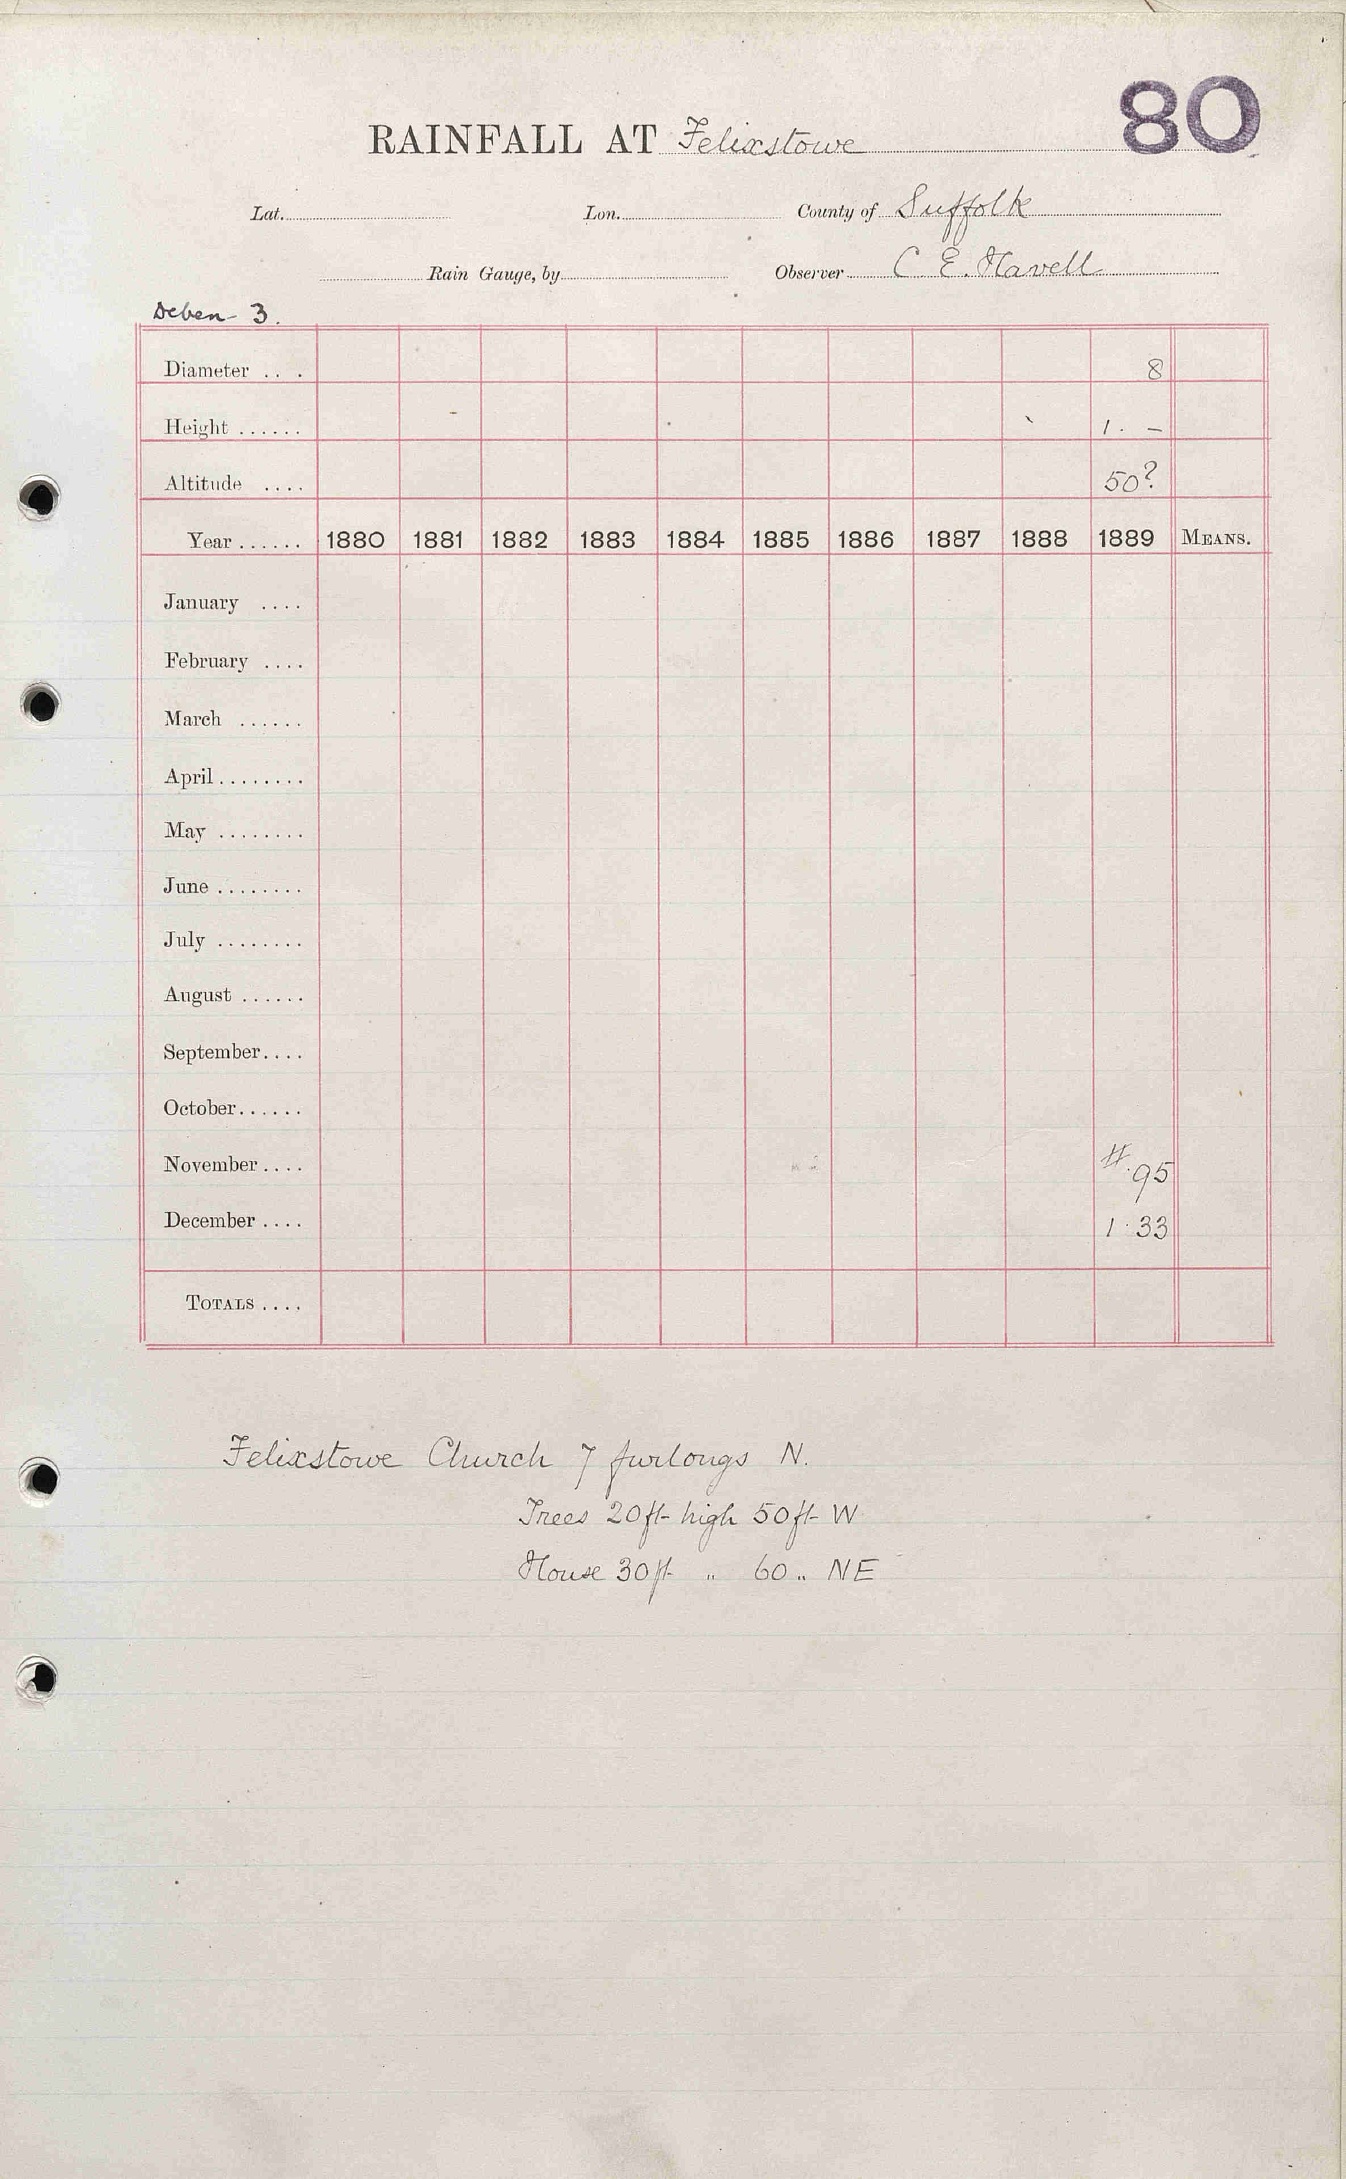 80
RAINFALL AT Felixstowe
Lat. Lon. County of Suffolk
Rain Gauge, by Observer C. E. Havell
Deben 3.
Diameter 8
Height 1. –
Altitude 50?
Year 1880 1881 1882 1883 1884 1885 1886 1887 1888 1889 MEANS.
January
February
March
April
May
June
July
August
September
October
November #.95
December 1.33
TOTALS
Felixstowe Church 7 furlongs N.
Trees 20ft high 50ft W
House 30ft „ 60 „ NE